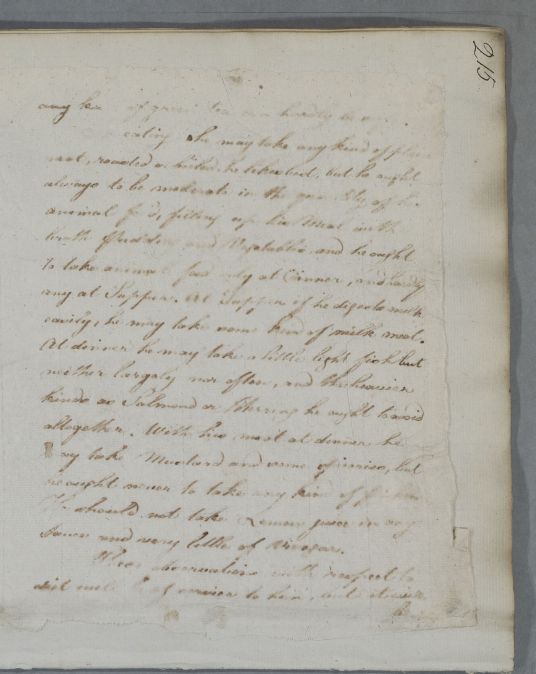 215
any
eating he may take any kind of plain
meat, roasted or boiled, he takes but, but he ought
always to be moderate in the quantity of his
animal food, filling up his meal with
broth Pudding and Vegetables and he ought
to take animal food only at Dinner, and hardly
any at Supper. At Supper if he digests milk
easily, he may take some kind of milk meat.
At dinner he may take a little light fish but
neither largely nor often, and the heavier
kinds as Salmond or Herring he ought to avoid
altogether. With his meat at dinner he
may take Mustard and some of, but
he ought never to take any kind of
He should not take Lemon juice in any
Sauce and very little of Vinegar.
These observations with respect to
diet will be of service to him, but